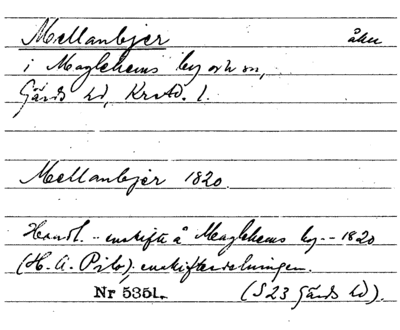 Mellanbjer åker
i Maglehems by och sn,
Gärds hd, Krstd. l.
Mellanbjer 1820.
Handl. .. enskifte å Maglehems by -- 1820
(H. A. Pilo); enskiftesdelningen.
Nr 5351. (S23 Gärds hd).